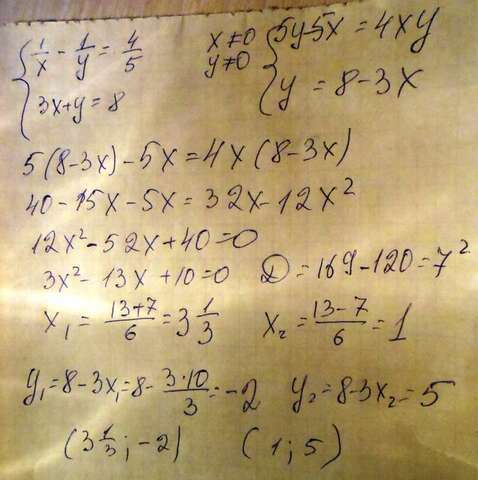 { 1/x - 1/y = 4/5   x≠0   { 5y-5x = 4xy
3x+y = 8   y≠0   y = 8-3x
5(8-3x)-5x=4x(8-3x)
40-15x-5x=32x-12x²
12x²-52x+40=0
3x²-13x+10=0   D=169-120=7²
x₁= (13+7)/6 = 3 1/3   x₂= (13-7)/6 = 1
y₁=8-3x₁=8- (3·10)/3 = -2   y₂=8-3x₂=5
(3 1/3; -2)   (1; 5)